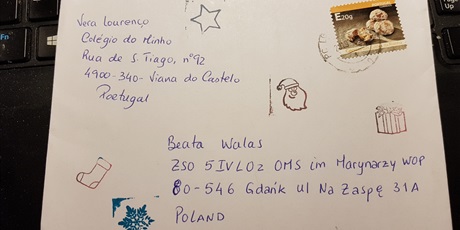 Vera Lourenço
Colégio do Minho
Rua de S Tiago, nº92
4900-340- Viana do Castelo
Portugal
E20g
Beata Walas
ZSO 5 IVLOz OMS im Marynarzy WOP
80-546 Gdańk ul Na Zaspę 31A
POLAND